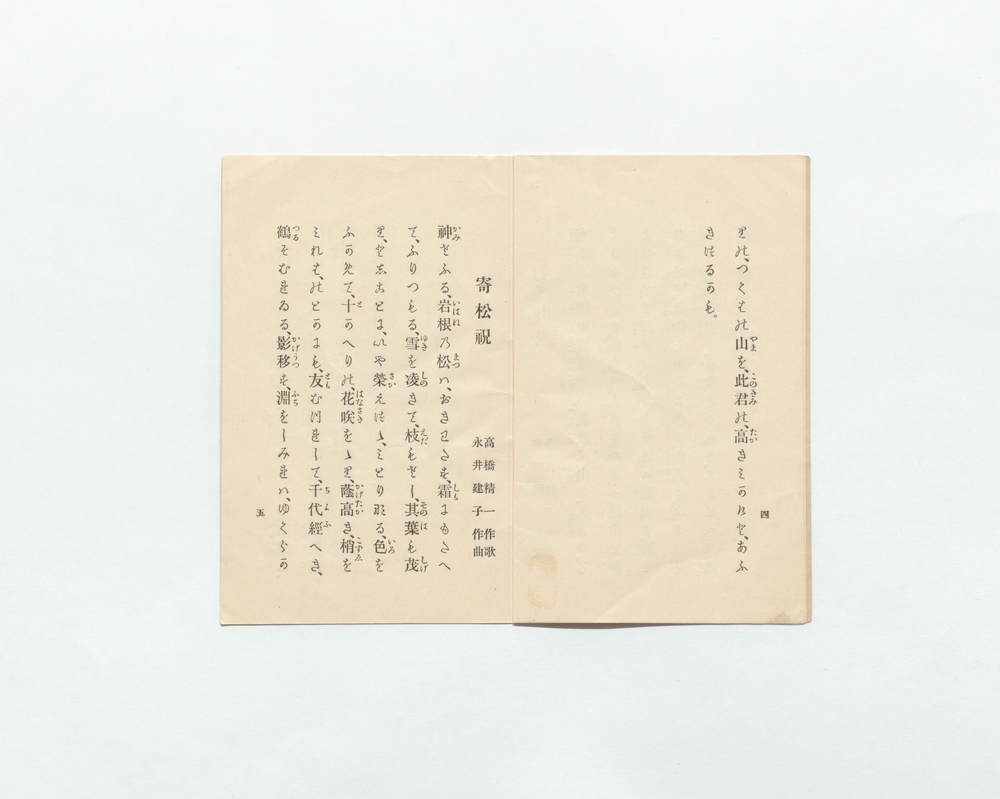 りの、つくはの山を、此君の、高きミかけと、あふ
きつるかも。
四
寄松祝
高橋精一作歌
永井建子作曲
神さふる、岩根乃松ハ、おきわたす、霜にもたへ
て、ふりつもる、雪を凌きて、枝もさし、其葉も茂
り、としことに、いや榮えつゝ、ミとりなる、色を
ふかめて、十かへりの、花咲をゝり、蔭高き、梢を
ミれは、のとかにも、友むつれして、千代經へき、
鶴そむれゐる、影移す、淵をしみれハ、ゆくらか
五